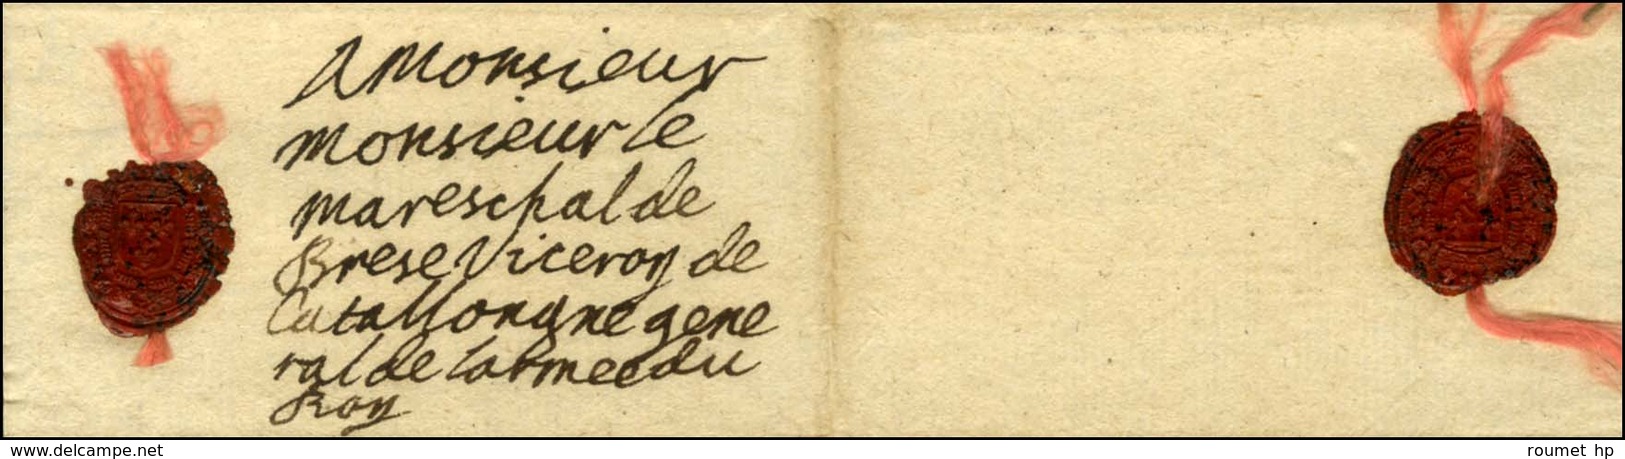 A Monsieur
Monsieur le
Mareschal de
Brese Viceroy de
Catallongne gene
ral de larmee du
Roy
www.delcampe.net
roumet hp